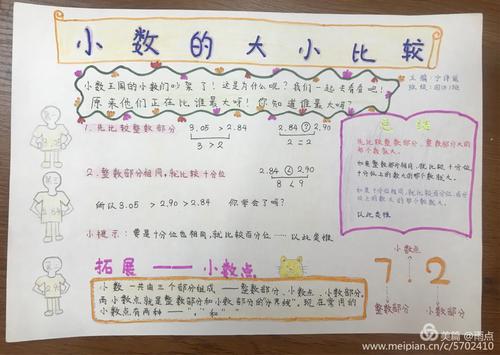 小数的大小比较
小数王国的小数们吵架了！这是为什么呢？我们一起去看看吧！
原来他们正在比谁最大呀！你知道谁最大吗？
班级：四(3)班
1.先比较整数部分
3.05 > 2.84
3 > 2
2.84 ? 2.90
2 = 2
2.整数部分相同，就比较十分位
2.84 < 2.90
8 < 9
所以 3.05 > 2.90 > 2.84 你学会了吗？
小提示：要是十分位也相同，就比较百分位……以此类推
总结
先比较整数部分，整数部分大的
那个数就大。
如果整数部分相同，就比较十分位
十分位上的数大的那个数就大。
以此类推
拓展——小数点
小数一共由三个部分组成——整数部分、小数点、小数部分。
而小数点就是整数部分和小数部分的“分界线”。现在常用的
小数点有两种——
小数点
7.2
整数部分
小数部分
美篇 @雨点
www.meipian.cn/c/5702410